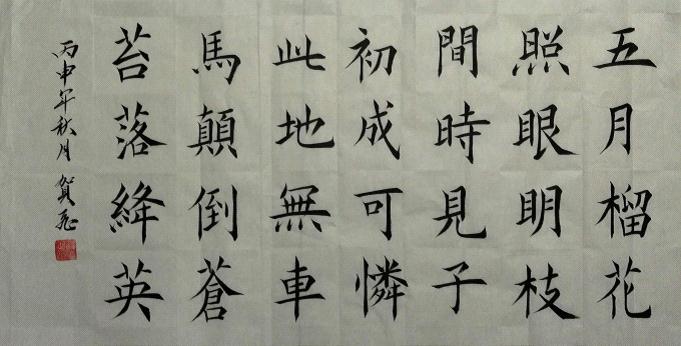 五月榴花
照眼明枝
間時見子
初成可憐
此地無車
馬顛倒蒼
苔落絳英
丙申年秋月 賀